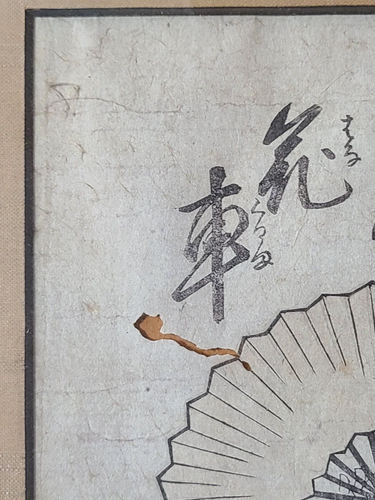 花車
はなくるま